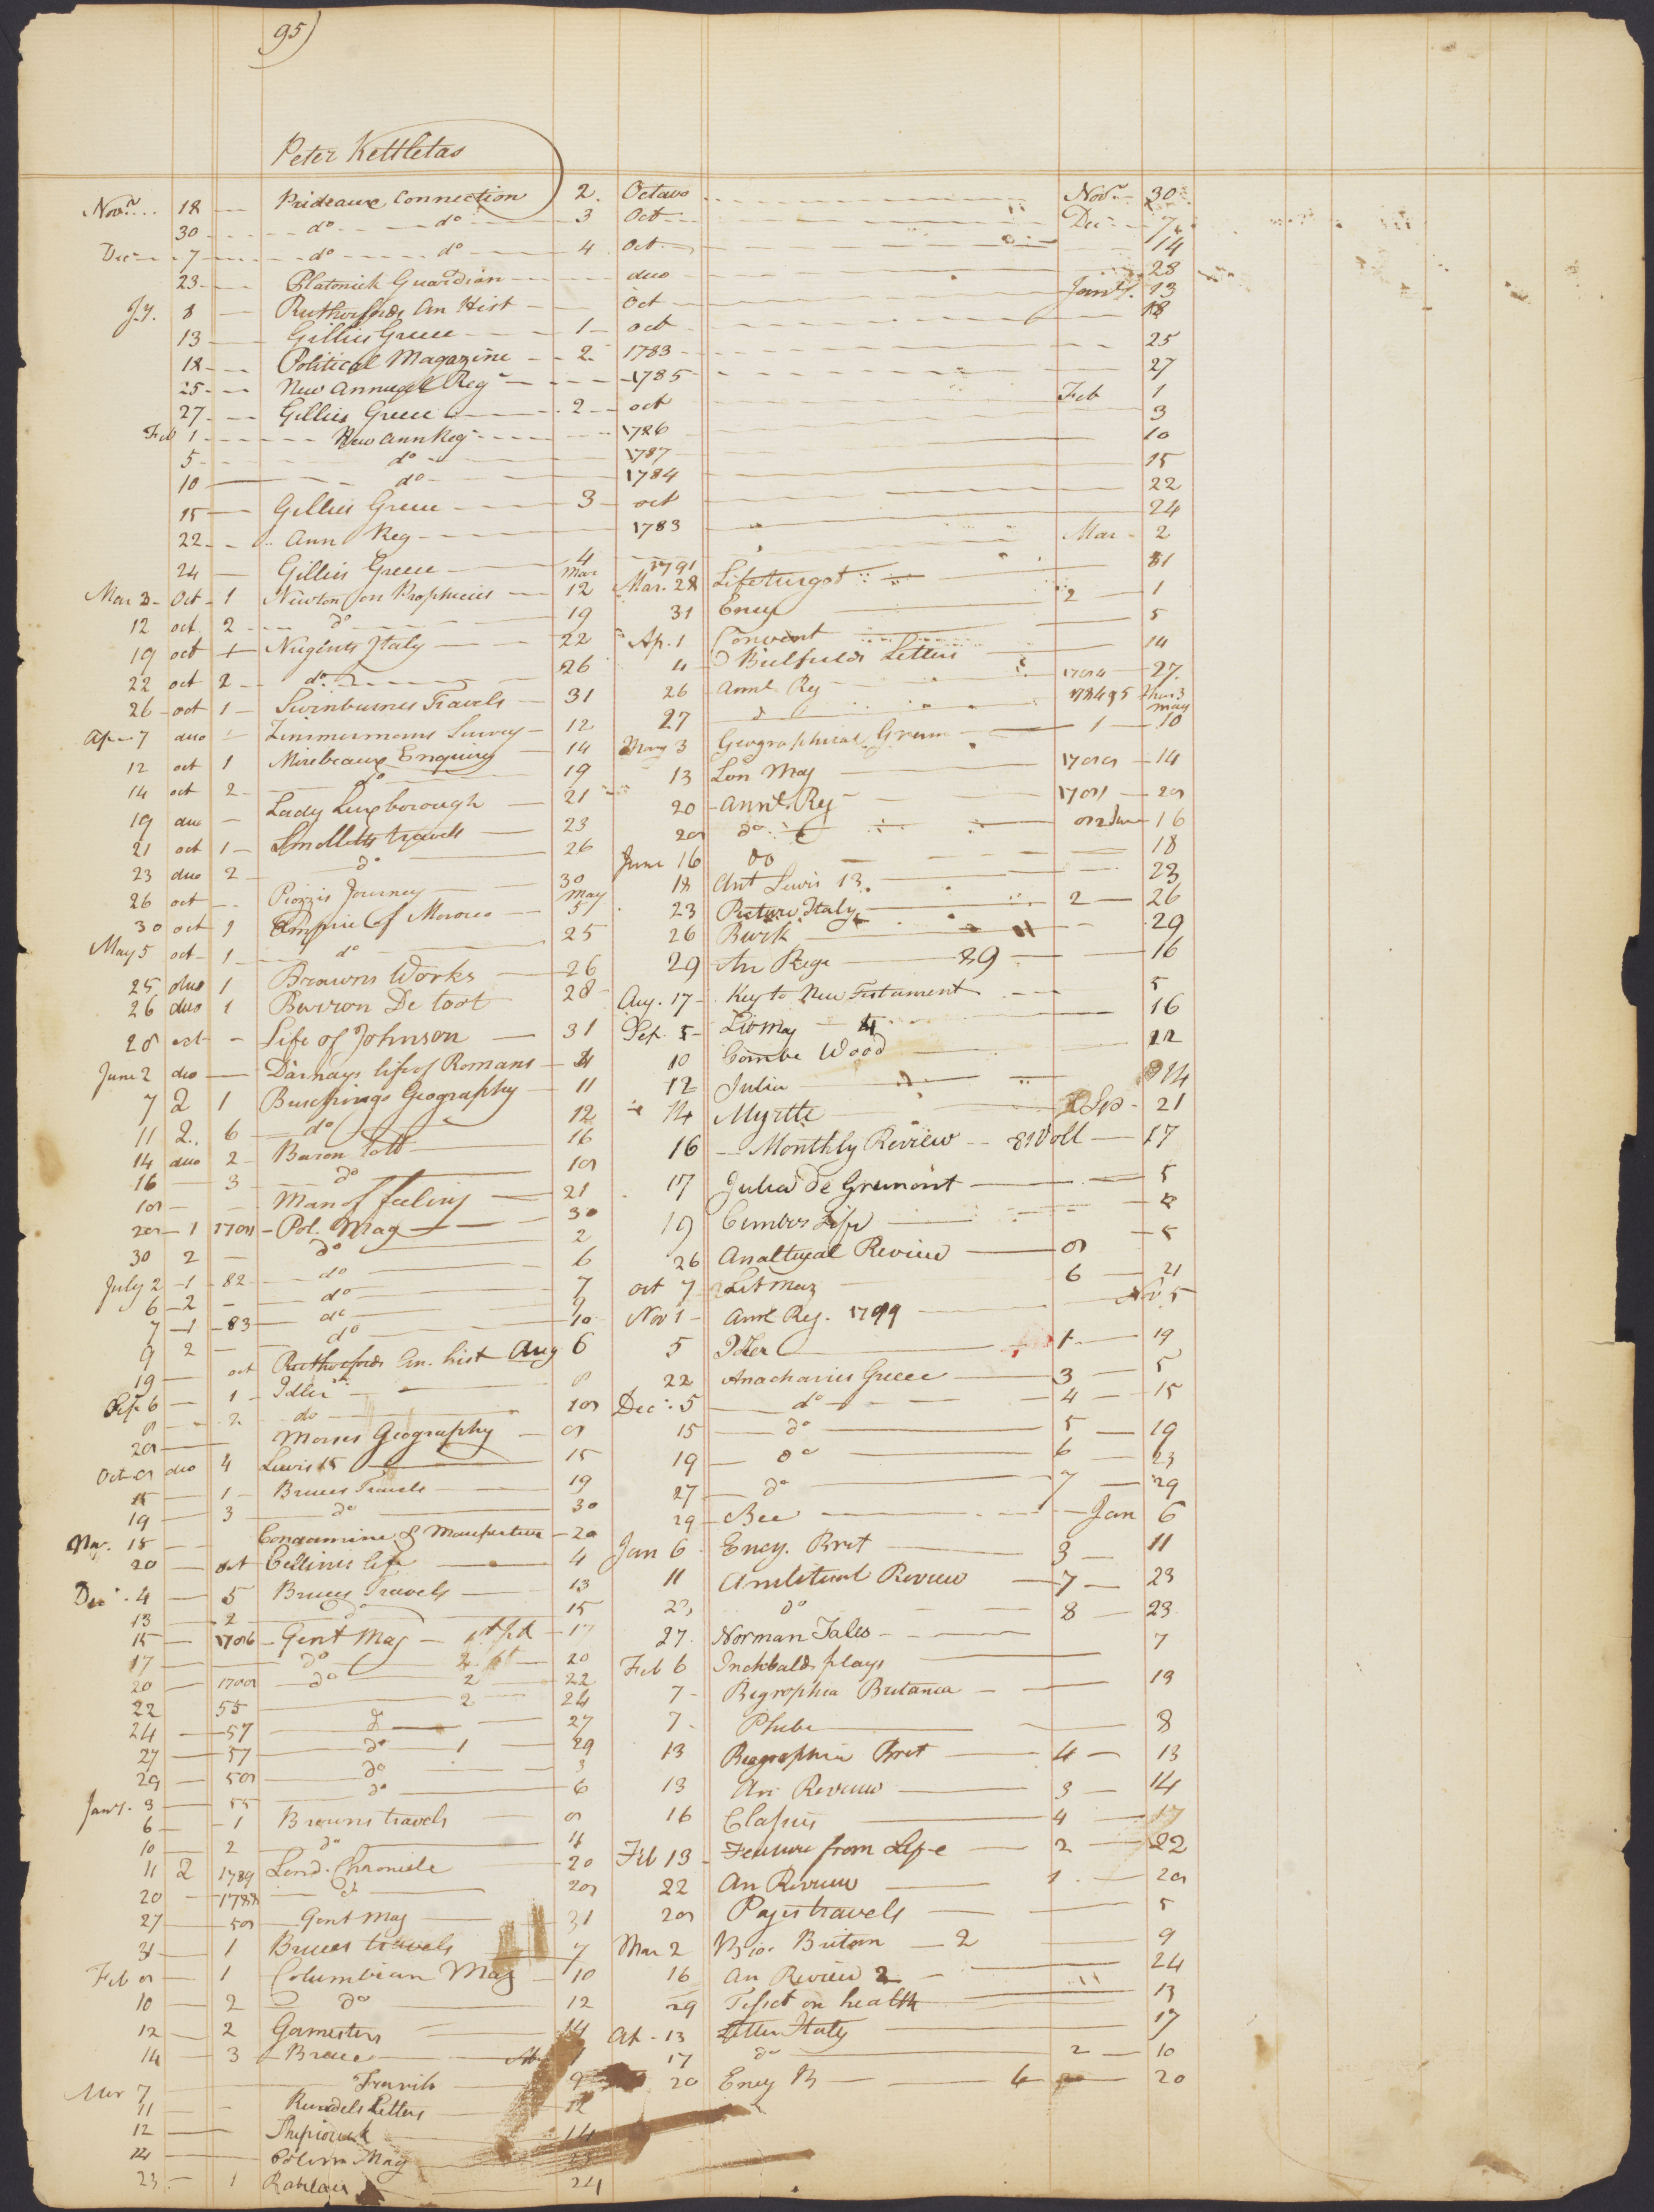 95)
Peter Kettletas
Novr. 18 Prideaux Connection 2. Octavo Novr. 30
30 do do 3 Oct Dec 7
Dec 7 do do 4 Oct 14
23 Platonick Guardian duo 28
Jy. 8 Rutherfords An Hist Oct Jany. 13
13 Gillies Greece 1 oct 18
18 Political Magazine 2 1783 25
25 New Annual Reg 1785 27
27 Gillies Greece 2 oct Feb 1
Feb 1 New Ann Reg 1786 3
5 do 1787 10
10 do 1784 15
15 Gillies Greece 3 oct 22
22 Ann Reg 1783 24
24 Gillies Greece 4 Mar 2
Mar 1791
Mar 3 Oct 1 Newton on Prophecies 12
12 oct 2 do 19
19 oct 1 Nugents Italy 22
22 oct 2 do 26
26 oct 1 Swinburnes Travels 31
Ap 7 duo Zimmermans Survey 12
12 oct 1 Mirebeaux Enquiry 14
14 oct 2 do 19
19 duo Lady Luxborough 21
21 oct 1 Smolletts travels 23
23 duo 2 do 26
26 oct Piozzis Journey 30
30 oct 1 Empire of Morocco May 5
May 5 oct 1 do 25
25 duo 1 Browns Works 26
26 duo 1 Barron De toot 28
28 oct Life of Johnson 31
June 2 duo Darnays life of Romans 4
7 2 1 Buschings Geography 11
11 2 6 do 12
14 duo 2 Baron Tott 16
16 3 do 18
18 Man of feeling 21
28 1 1781 Pol. Mag 30
30 2 do 2
July 2 1 82 do 6
6 2 do 7
7 1 83 do 9
9 2 do 10
19 oct Rutherfords An. hist Aug 6
Sep 6 1 Idler 8
8 2 do 18
28 Morses Geography 8
Oct 8 duo 4 Lewis 15 15
15 1 Bruces Travels 19
19 3 do 30
Nov. 18 Condamine & Maupertuis 20
20 oct Cellinis life 4
Decr. 4 5 Bruces Travels 13
13 2 do 15
15 1786 Gent Mag 17
17 do 2 20
20 1788 do 2 22
22 55 2 24
24 57 do 27
27 57 do 1 29
29 58 do 3
Jany. 3 55 do 6
6 1 Browns travels 8
10 2 do 11
11 2 1789 Lond. Chronicle 20
20 1788 do 28
27 58 Gent Mag 31
31 1 Bruces travels 7
Feb 8 1 Columbian Mag 10
10 2 do 12
12 2 Gamesters 14
14 3 Bruce
Mar 7 Travels 9
11 Rundels Letters 12
12 14
14 Colum Mag
23 1 Rabelais 24
Mar. 28 Life Turgot 31
31 Ency 2 1
Ap. 1 Convent 5
4 Bielfields Letters 14
26 Annl Reg 1784 27
27 do 1784 85 May 3
May 3 Geographical Gram 1 10
13 Lon Mag 1788 14
20 Annl. Reg 1781 28
28 do 82 June 16
June 16 do 18
18 Ant Lewis 13 23
23 Picture Italy 2 26
26 Burk 29
29 An Rege 89 16
Aug. 17 Key to New Testament 5
Sep. 5 Lit Mag 4 16
10 Combe Wood 12
12 Julia 14
14 Myrtle 21
16 Monthly Review 81 Voll 17
17 Julia de Gramont 5
19 Cumbers Life
26 Analtycal Review 8 5
oct 7 Lit Mag 6 21
Nov 1 Annl Reg. Nv. 5
5 Idler 1 19
22 Anacharsis Greece 3 5
Dec: 5 do 4 15
15 do 5 19
19 do 6 23
27 do 7 29
29 Bee Jan 6
Jan 6 Ency. Brit 3 11
11 Analitical Review 7 23
23 do 8 23
27 Norman Tales
Feb 6 Inchbalds plays 7
7 Biographia Britanica 13
7 Phebe 8
13 Biographia Brit 4 13
13 An Review 3 14
16 Classics 4 17
Feb 13 Feature from Life 2 22
22 An Review 1 28
28 Pages travels 5
Mar 2 Bio. Britan 2 9
16 An Review 2 24
29 Tissot on health 13
Ap 13 Letters Italy 17
17 do 2 10
20 Ency B 6 20